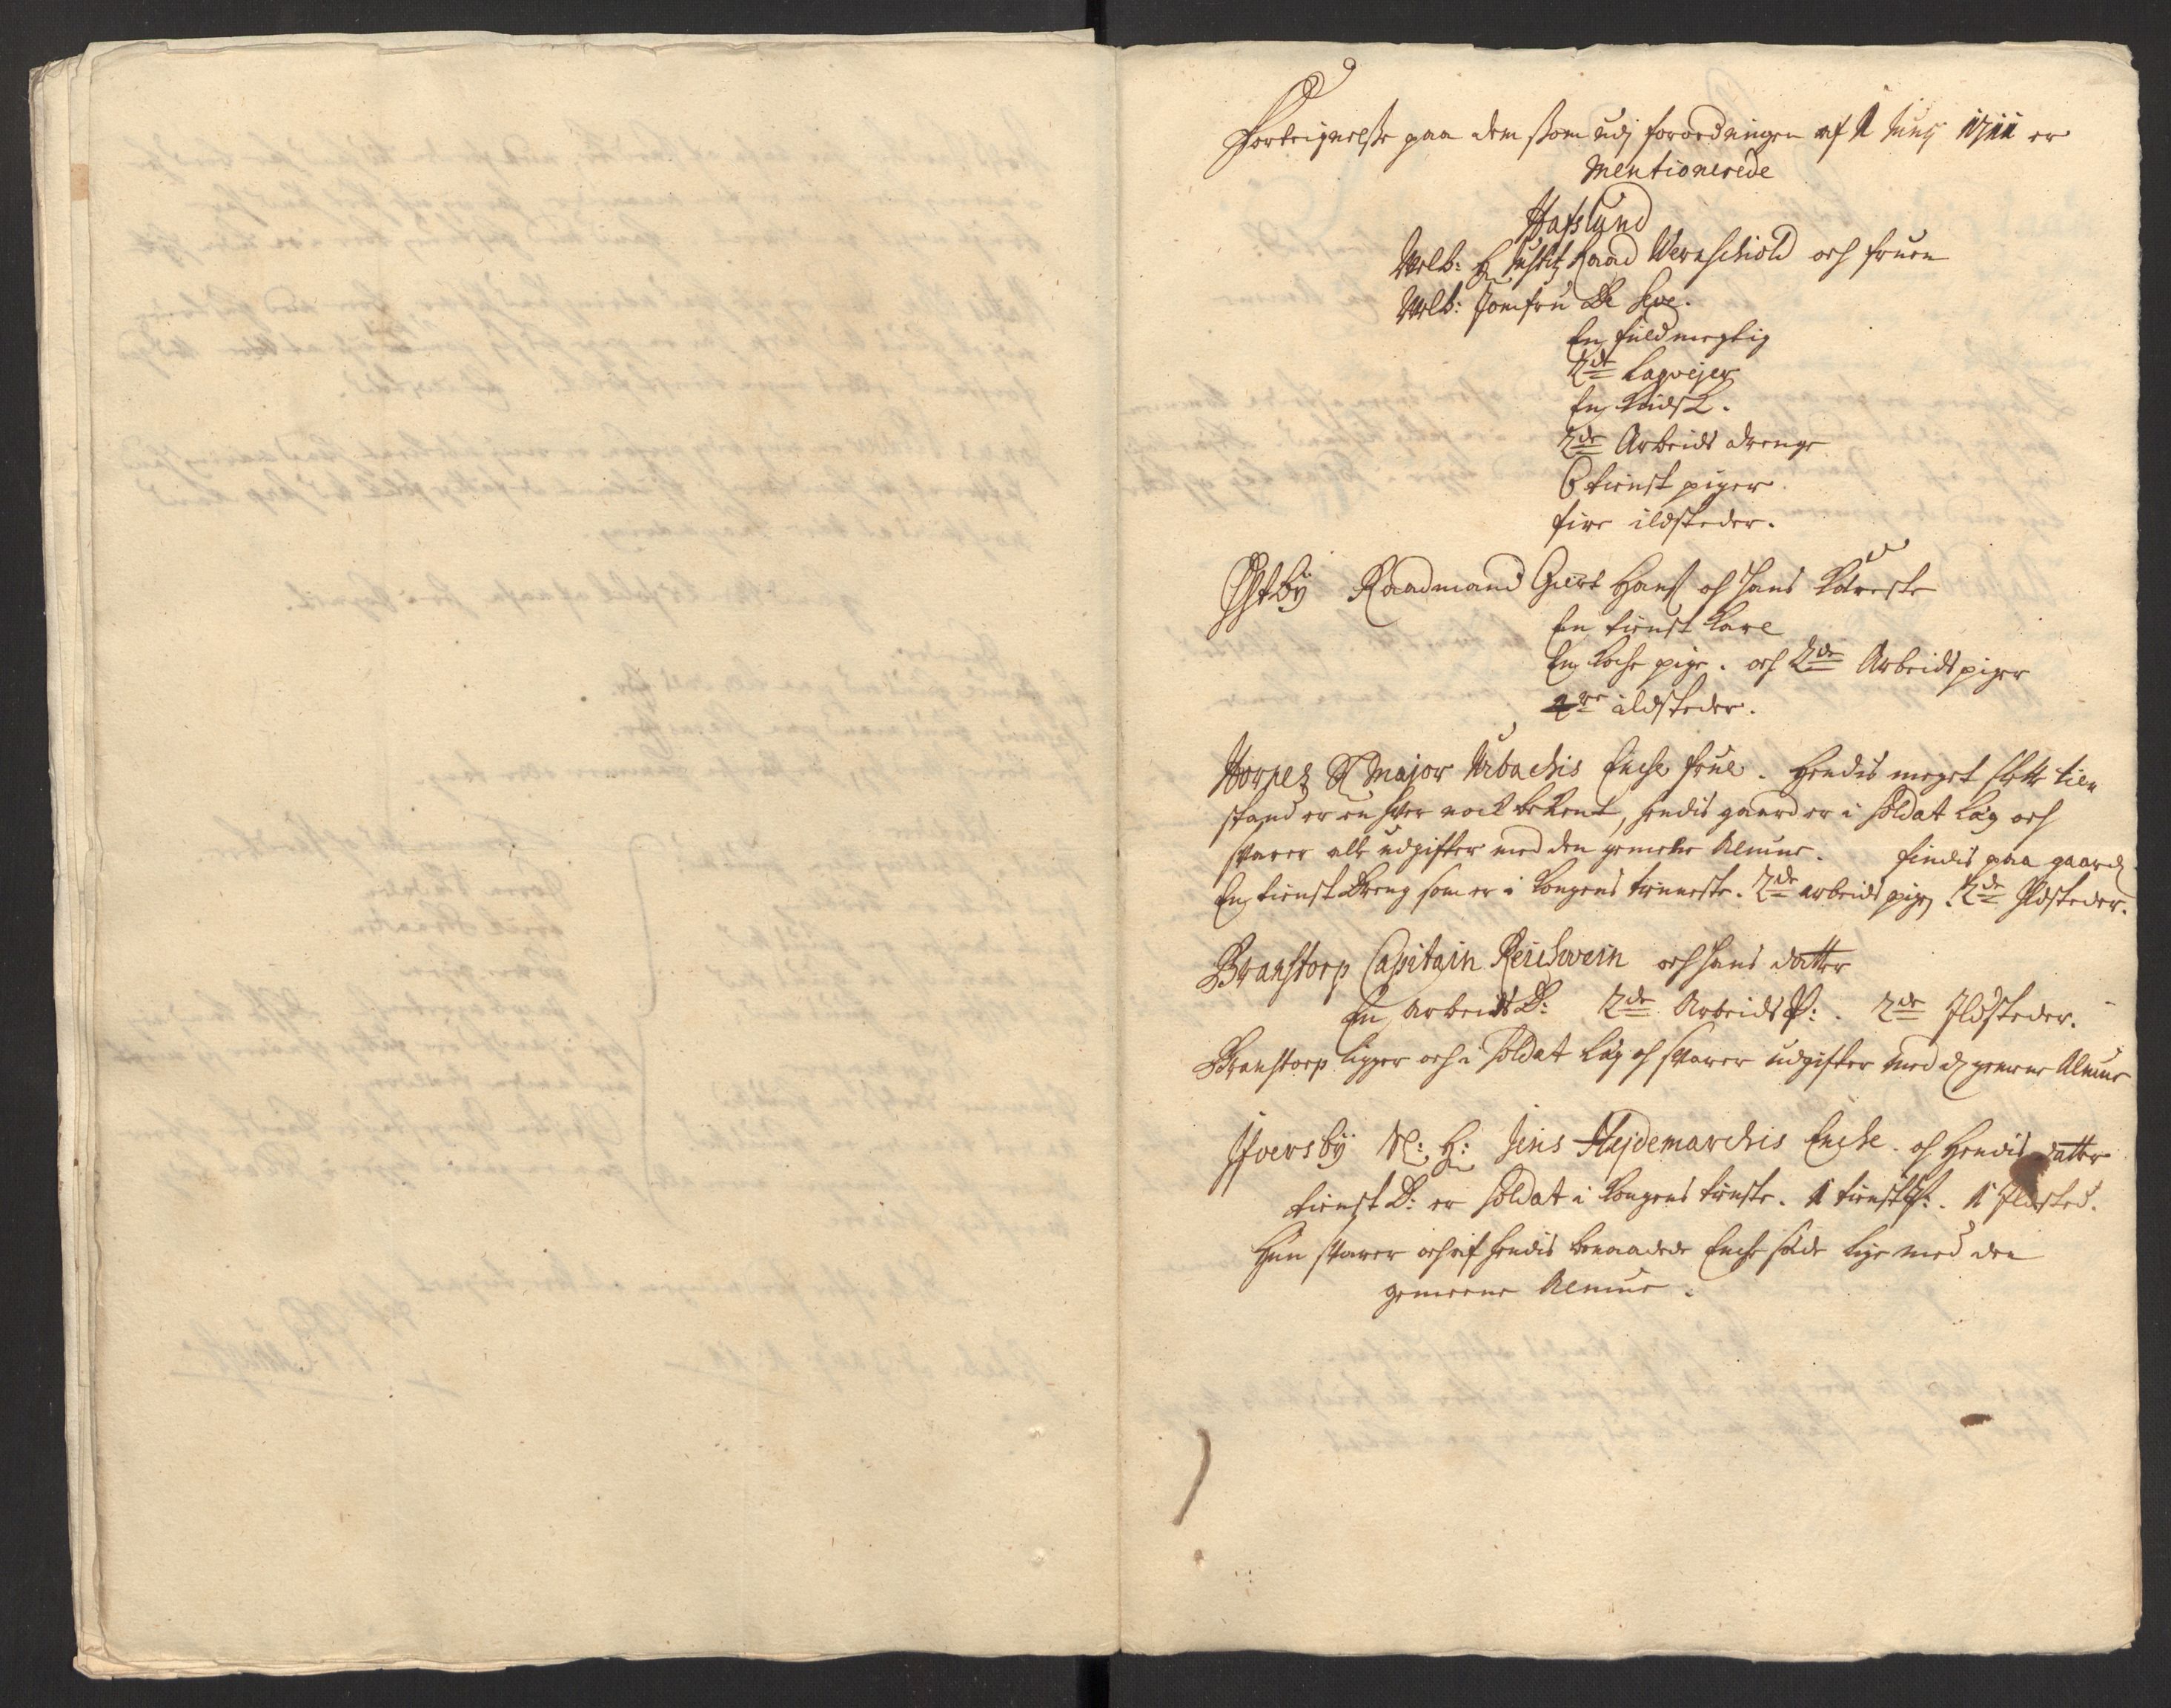 Forteignelsse paa dem ssom udj forordningen af 1 Junij 1711 er
Mentionerede
Hafslund
Welb: H Justitz Raad Wernschiold och fruen
Welb: Jomfru De Seve.
En fuldmegtig
2de Laqvejer
En Kudsk.
2de Arbeids drenge
6 tienst piger.
fire ildsteder.
Østbÿ Raadmand Giert Hanß och hans Kiæreste
En tienst Karl
En Koche pige. och 2de Arbeids piger
ildsteder.
Hornes Sl Major Urbachis Enche frue. Hendis meget slette tiln
stand er en hver nock bekent, hendis gaard er i Soldat Læg och
svarer alle udgifter med den gemene Almue. findis paa gaard
En tienst Dreng som er i Kongens tienneste. 2de arbeids pigr. 2de Ildsteder.
Branstorp Capitain Reichwein och hans datter
En Arbeids D: 2de Arbeids P:. 2de Ildsteder.
Branstorp ligger och i Soldat Læg och svarer udgifter med d gemene Almue
Ifversbÿ Sl: H: Jens Hejdemarchis Enche. och Hendis datter
tienst D: er Soldat i Kongens tieneste. 1 tienst P:. 1 Ildsted.
Hun svarer och af hendis benaadede Enche sæde lige med den
gemeene Almue.